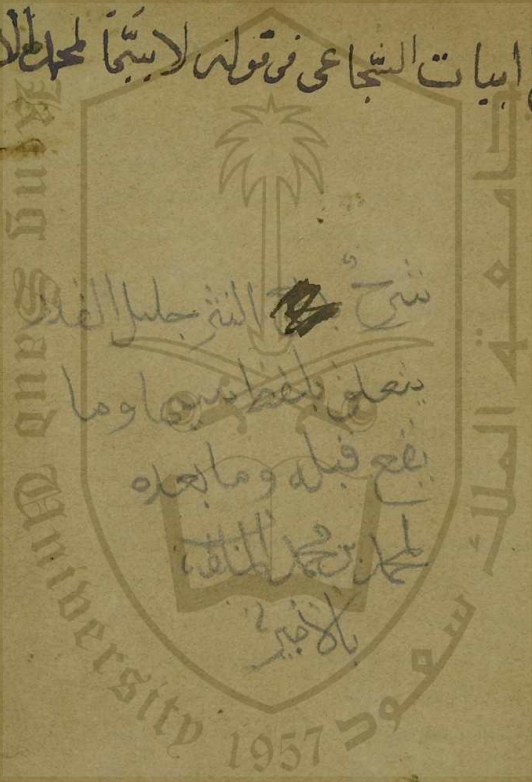 ابيات السجاعى فى قوله لاسيما لمحمد الا
شرح النثر جليل القدر
يتعلق بلفظ سيما وما
يقع قبله وما بعده
لمحمد بن محمد الملقب
بالأمير
King Saud University
جامعة الملك سعود
1957